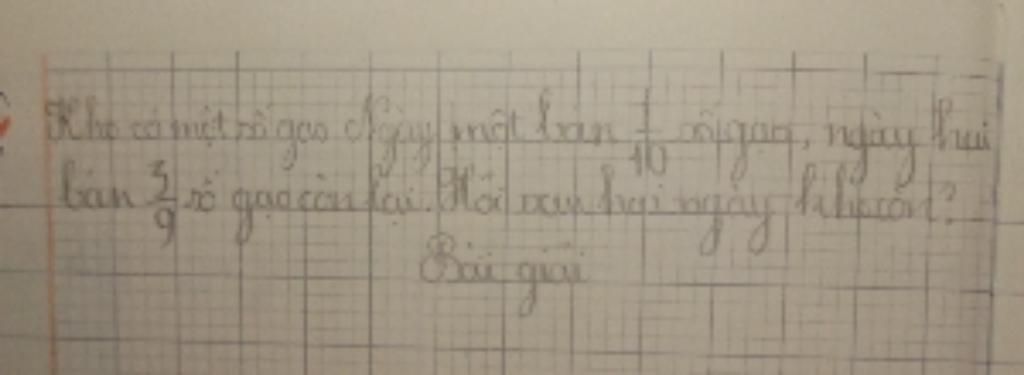 Kho có một số gạo. Ngày một bán 1/10 số gạo, ngày hai
bán 3/9 số gạo còn lại. Hỏi sau hai ngày kho còn?
Bài giải